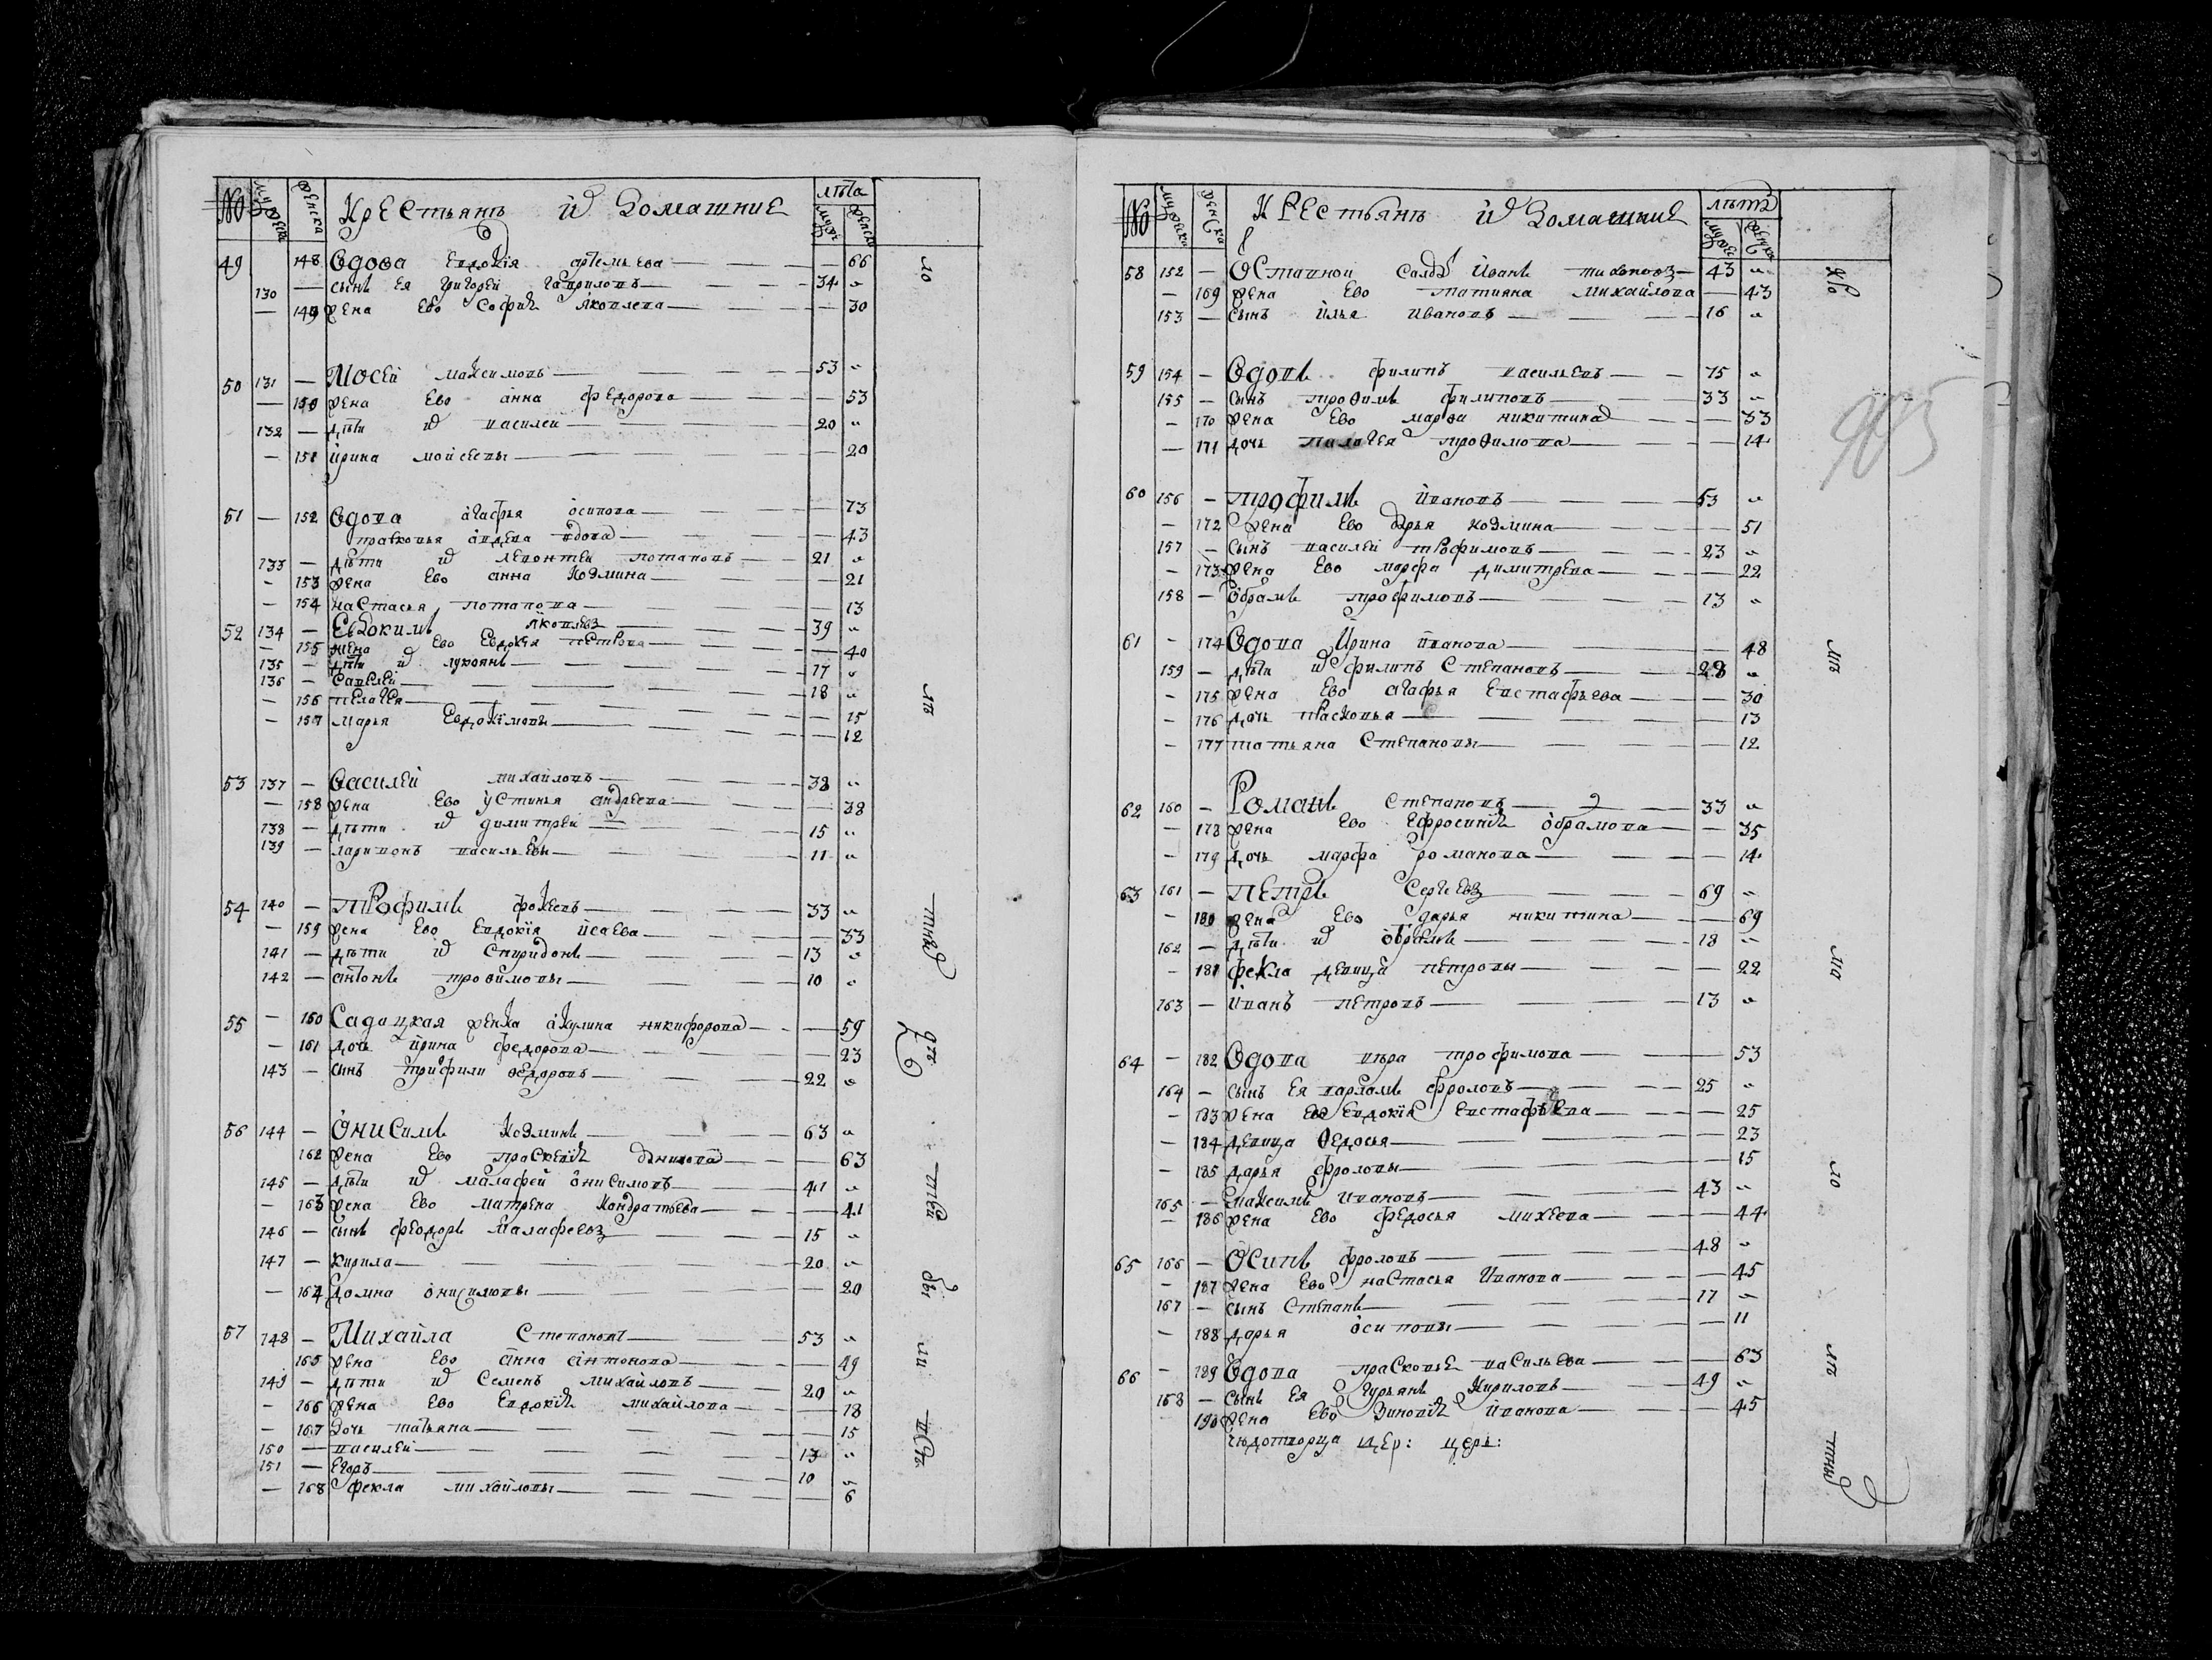 № мужеска женска Крестьянъ и домашние лѣта мужс женска
49 148 Вдова Евдокія артемьева — 66
130 — сынъ ея григорей гавриловъ — 34 "
— 149 жена ево софия яковлева — 30
50 131 — Мосей максимовъ — 53 "
— 150 жена ево анна федорова — 53
132 — дѣти их василей — 20 "
— 151 ирина мойсеевы — 20
51 — 152 Вдова агафья осипова — 73
прасковья авдеева вдова — 43
133 — дѣти их леонтей потаповъ — 21 "
— 153 жена ево анна козмина — 21
— 154 настасья потапова — 13
52 134 — Евдокимъ яковлевъ — 39 "
— 155 жена ево Евдокия петрова — 40
135 — дѣти их лукоянъ — 17 "
136 — савелей — 18 "
— 156 пелагея — 15
— 157 марья Евдокимовы — 12
53 137 — Василей михайловъ — 38 "
— 158 жена ево устинья андреева — 38
138 — дѣти их димитрей — 15 "
139 — ларионъ васильевы — 11 "
54 140 — трофимъ фокеевъ — 33 "
— 159 жена ево Евдокія исаева — 33
141 — дѣти их спиридонъ — 13 "
142 — антонъ трофимовы — 10 "
55 — 160 Садацкая женка акулина никифорова — 59
— 161 дочь ирина федорова — 23
143 — сынъ трифили ѳедоровъ — 22 "
56 144 — Онисимъ козминъ — 63 "
162 жена ево праскевия данилова — 63
145 — дѣти их малафей онисимовъ — 41 "
— 163 жена ево матрена кондратьева — 41
146 — сынъ феодоръ малафеевъ — 15 "
147 — кирила — 20 "
— 164 домна онисимовы — 20
57 148 — Михайла степановъ — 53 "
165 жена ево анна антонова — 49
149 — дѣти их семенъ михайловъ — 20 "
— 166 жена ево Евдокия михайлова — 18
— 167 дочь татьяна — 15
150 — василей — 13 "
151 — Егоръ — 10 "
— 168 фекла михайловы — 6
№ мужеска женска Крестьянъ и домашние лѣта мужес женска
905
58 152 — Оставной салдъ Иванъ тихоновъ — 43 "
— 169 жена ево татияна михайлова — 43
153 — сынъ илья ивановъ — 16 "
59 154 — Вдовъ филипъ васильевъ — 75 "
155 — сынъ трофимъ филиповъ — 33 "
— 170 жена ево марфа никитина — 33
— 171 дочь пелагея трофимова — 14
60 156 — трофимъ ивановъ — 53 "
— 172 жена ево дарья козмина — 51
157 — сынъ василей трофимовъ — 23 "
— 173 жена ево марфа димитрева — 22
158 — обрамъ трофимовъ — 13 "
61 — 174 Вдова Ирина иванова — 48
159 — дѣти их филипъ степановъ — 28 "
— 175 жена ево агафья Евстафьева — 30
— 176 дочь прасковья — 13
— 177 татьяна степановы — 12
62 160 — Романъ степановъ — 33 "
— 178 жена ево Ефросиния обрамова — 35
— 179 дочь марфа романова — 14
63 161 — петръ сергеевъ — 69 "
— 180 жена ево дарья никитина — 69
162 — дѣти их обрамъ — 18 "
— 181 фекла девица петровы — 22
163 — иванъ петровъ — 13 "
64 — 182 Вдова вѣра трофимова — 53
164 — сынъ ея варламъ фроловъ — 25 "
— 183 жена ево евдокия Евстафьева — 25
— 184 девица ѳедосья — 23
— 185 дарья фроловы — 15
165 — максимъ ивановъ — 43 "
— 186 жена ево федосья михеева — 44
65 166 — Осипъ фроловъ — 48 "
— 187 жена ево настасья Иванова — 45
167 — сынъ степанъ — 17 "
— 188 дарья осиповы — 11
66 — 189 Вдова прасковья васильева — 63
168 — сынъ ея гурьянъ кириловъ — 49 "
190 жена ево зиновия иванова — 45
чюдотворца цер: церк: